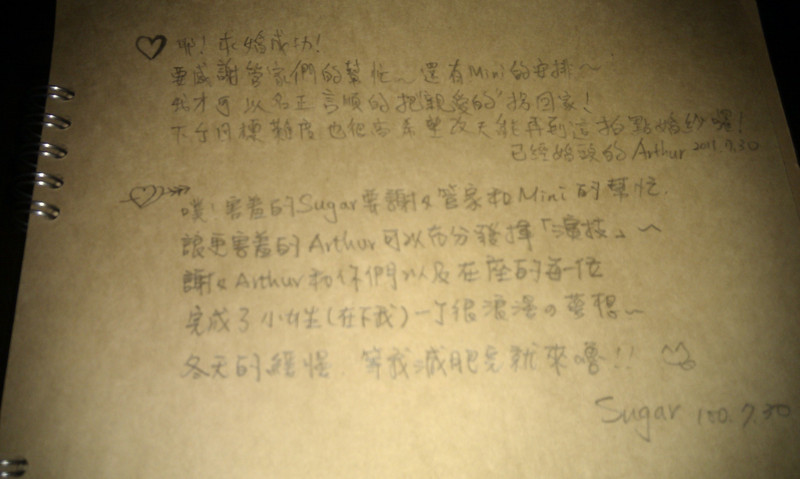 耶！求婚成功！
要感謝管家們的幫忙～還有Mini的安排～
我才可以名正言順的把"親愛的"拐回家！
不令目標難度也很高 希望改天能再到這拍點婚紗囉！
已經婚頭的 Arthur 2011.7.30
噗！害羞的Sugar要謝謝管家和Mini的幫忙.
讓更害羞的Arthur可以充分發揮「演技」～
謝謝Arthur和你們以及在座的每一位
完成了小女生(在下我)一個很浪漫の夢想～
冬天的 等我減肥完就來嚕!!
Sugar 100.7.30